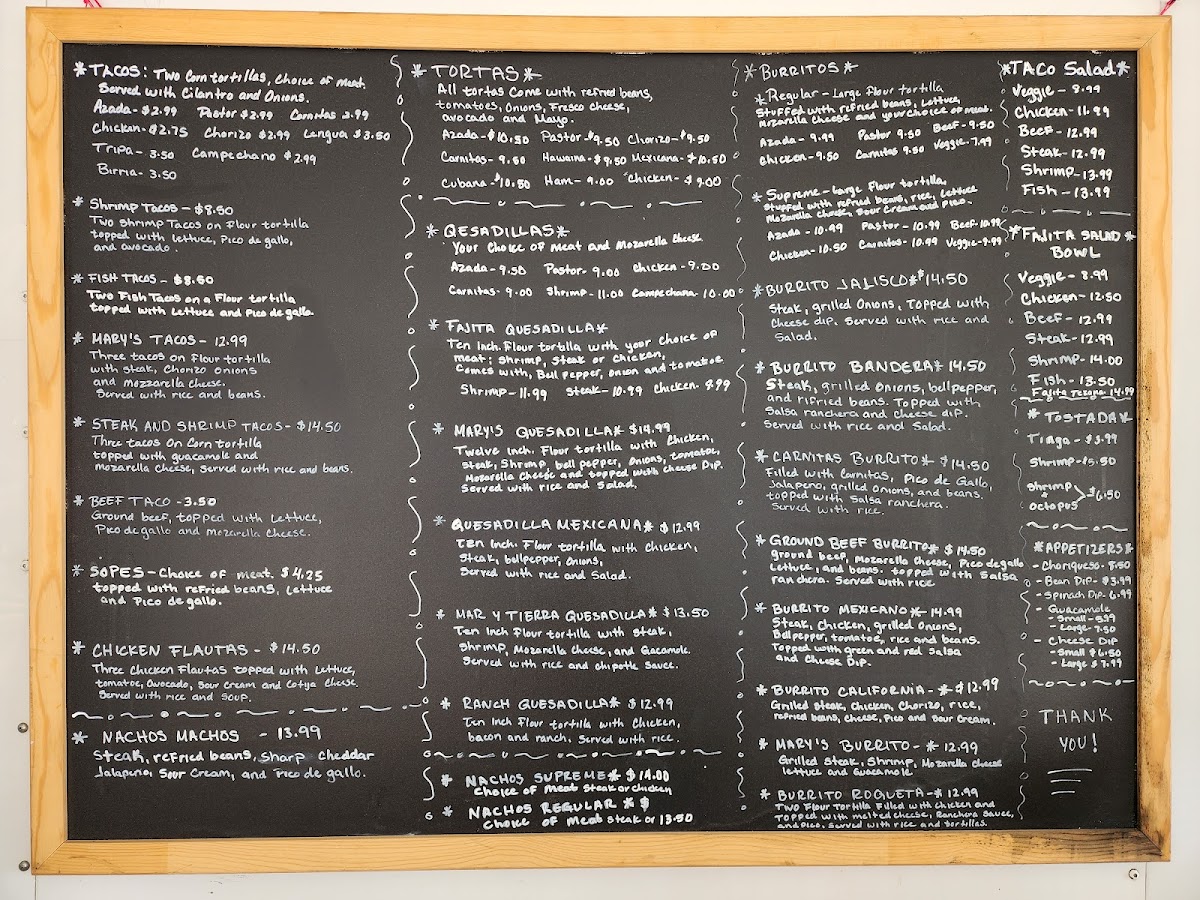 *TACOS: Two Corn tortillas, Choice of meat.
Served with Cilantro and Onions.
Azada - $2.99 Pastor $2.99 Carnitas 2.99
Chicken - $2.75 Chorizo $2.99 Lengua $3.50
Tripa - 3.50 Campechano $2.99
Birria - 3.50
* Shrimp Tacos - $8.50
Two Shrimp Tacos on Flour tortilla
topped with lettuce, Pico de gallo,
and avocado.
* FISH TACOS - $8.50
Two Fish Tacos on a Flour tortilla
topped with Lettuce and Pico de gallo.
* MARY'S TACOS - 12.99
Three tacos on flour tortilla
with steak, Chorizo Onions
and mozzarella cheese.
Served with rice and beans.
* STEAK AND SHRIMP TACOS - $14.50
Three tacos on Corn tortilla
topped with guacamole and
mozarella Cheese, Served with rice and beans.
* BEEF TACO - 3.50
Ground beef, topped with Lettuce,
Pico de gallo and Mozarella Cheese.
* SOPES - Choice of meat. $4.25
topped with refried beans, Lettuce
and Pico de gallo.
* CHICKEN FLAUTAS - $14.50
Three Chicken Flautas topped with Lettuce,
tomatoe, Avocado, Sour cream and Cotija Cheese.
Served with rice and soup.
* NACHOS MACHOS - 13.99
Steak, refried beans, Sharp cheddar
Jalapeno, Sour Cream, and Pico de gallo.
* TORTAS *
All tortas Come with refried beans,
tomatoes, Onions, Fresco Cheese,
avocado and Mayo.
Azada - $10.50 Pastor - $9.50 Chorizo - $9.50
Carnitas - 9.50 Hawaina - $9.50 Mexicana - $10.50
Cubana - $10.50 Ham - 9.00 Chicken - $9.00
* QESADILLAS *
Your Choice of meat and Mozarella Cheese.
Azada - 9.50 Pastor - 9.00 Chicken - 9.00
Carnitas - 9.00 Shrimp - 11.00 Campechana - 10.00
* FAJITA QUESADILLA *
Ten Inch. Flour tortilla with your choice of
meat: Shrimp, Steak or Chicken,
Comes with, Bell pepper, Onion and tomatoe
Shrimp - 11.99 Steak - 10.99 Chicken - 9.99
* MARY'S QUESADILLA * $14.99
Twelve Inch. Flour tortilla with Chicken,
Steak, Shrimp, bell pepper, Onions, tomatoe,
Mozarella Cheese and topped with cheese Dip.
Served with rice and Salad.
* QUESADILLA MEXICANA * $12.99
Ten Inch. Flour tortilla with Chicken,
Steak, bellpepper, Onions,
Served with rice and Salad.
* MAR Y TIERRA QUESADILLA * $13.50
Ten Inch Flour tortilla with Steak,
Shrimp, Mozarella Cheese, and Gacamole.
Served with rice and chipotle sauce.
* RANCH QUESADILLA * $12.99
Ten Inch Flour tortilla with Chicken,
bacon and ranch. Served with rice.
* NACHOS SUPREME * $14.00
Choice of Meat Steak or Chicken
* NACHOS REGULAR * $
Choice of Meat Steak or 13.50
* BURRITOS *
* Regular - Large Flour tortilla
Stuffed with refried beans, Lettuce,
Mozarella Cheese and your choice of meat.
Azada - 9.99 Pastor 9.50 Beef - 9.50
Chicken - 9.50 Carnitas 9.50 Veggie - 7.99
* Supreme - Large Flour tortilla,
Stuffed with refried beans, rice, Lettuce
Mozarella Cheese, Sour Cream and Pico.
Azada - 10.99 Pastor - 10.99 Beef - 10.99
Chicken - 10.50 Carnitas - 10.99 Veggie - 9.99
* BURRITO JALISCO * $14.50
Steak, grilled Onions, Topped with
Cheese dip. Served with rice and
Salad.
* BURRITO BANDERA * 14.50
Steak, grilled Onions, bellpepper,
and rifried beans. Topped with
Salsa ranchera and cheese dip.
Served with rice and Salad.
* CARNITAS BURRITO * $14.50
Filled with Carnitas, Pico de Gallo,
Jalapeno, grilled Onions, and beans.
topped with Salsa ranchera.
Served with rice.
* GROUND BEEF BURRITO * $14.50
ground beef, Mozarella Cheese, Pico de gallo
Lettuce, and beans. topped with Salsa
ranchera. Served with rice
* BURRITO MEXICANO * 14.99
Steak, Chicken, grilled Onions,
Bellpepper, tomatoe, rice and beans.
Topped with green and red Salsa
and Cheese Dip.
* BURRITO CALIFORNIA - * $12.99
Grilled Steak, Chicken, Chorizo, rice,
refried beans, Cheese, Pico and Sour Cream.
* MARY'S BURRITO - * 12.99
Grilled Steak, Shrimp, Mozarella Cheese
lettuce and Guacamole
* BURRITO ROQUETA - * $12.99
TWO Flour Tortilla Filled with chicken and
TOPPED with melted cheese, Ranchera Sauce,
and Pico, Served with rice and tortillas.
*TACO Salad*
Veggie - 8.99
Chicken - 11.99
Beef - 12.99
Steak - 12.99
Shrimp - 13.99
Fish - 13.99
* FAJITA SALAD *
BOWL
Veggie - 8.99
Chicken - 12.50
Beef - 12.99
Steak - 12.99
Shrimp - 14.00
Fish - 13.50
Fajita Texana - 14.99
* TOSTADA *
Tinga - $3.99
Shrimp - $5.50
Shrimp
+ $6.50
octopus
*APPETIZERS*
- Choriqueso - 8.50
- Bean Dip - $3.99
- Spinach Dip - 6.99
- Guacamole
- Small - 5.99
- Large - 7.50
- Cheese Dip
- Small $6.50
- Large $7.99
THANK
YOU!